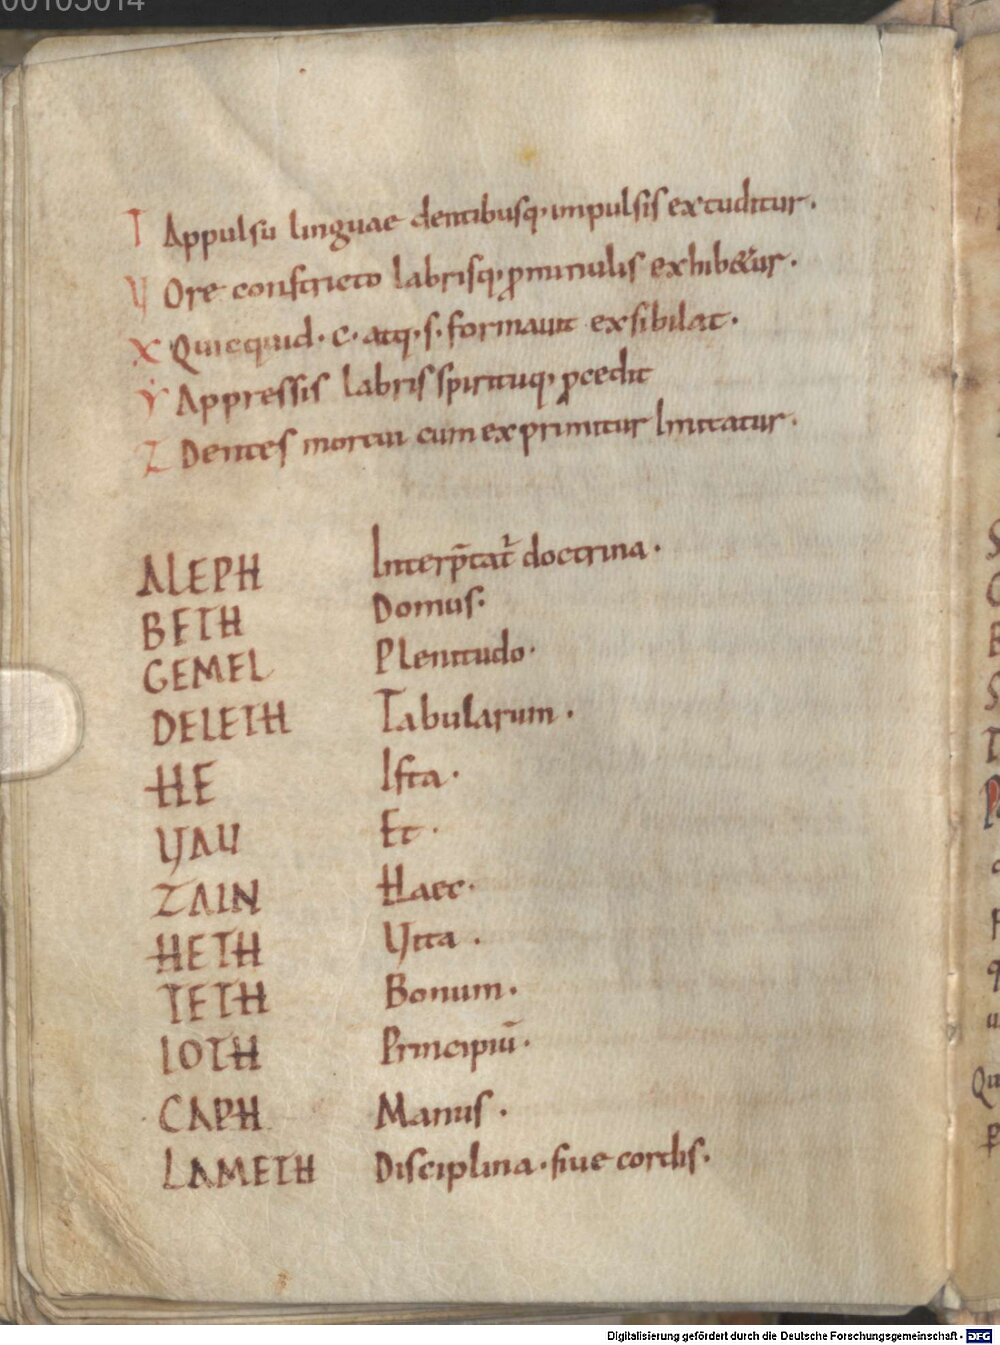 00105014
T Appulsu linguae dentibusq· inpulsis excuditur·
Ų Ore constricto labrisq· p̄minulis exhibet᷑ur·
X Quicquid· c· atq· s· formauit exsibilat·
Ẏ Appressis labris spirituq· p̄cedit
Z Dentes mortui cum exprimitur Imitatur·
ALEPH Interp̄tat᷑ doctrina·
BETH Domus·
GEMEL Plenitudo·
DELETH Tabularum·
HE Ista·
UAU Et·
ZAIN Haec·
HETH Uita·
TETH Bonum·
IOTH Principiū·
CAPH Manus·
LAMETH Disciplina· siue cordis·
Digitalisierung gefördert durch die Deutsche Forschungsgemeinschaft - DFG